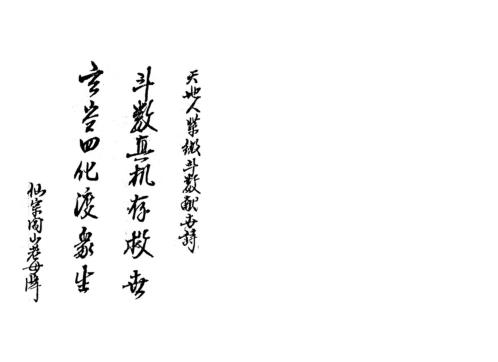 天地人紫微斗數献世詩
斗數真机存救世
玄岩四化渡眾生
仙宗閭山老母降